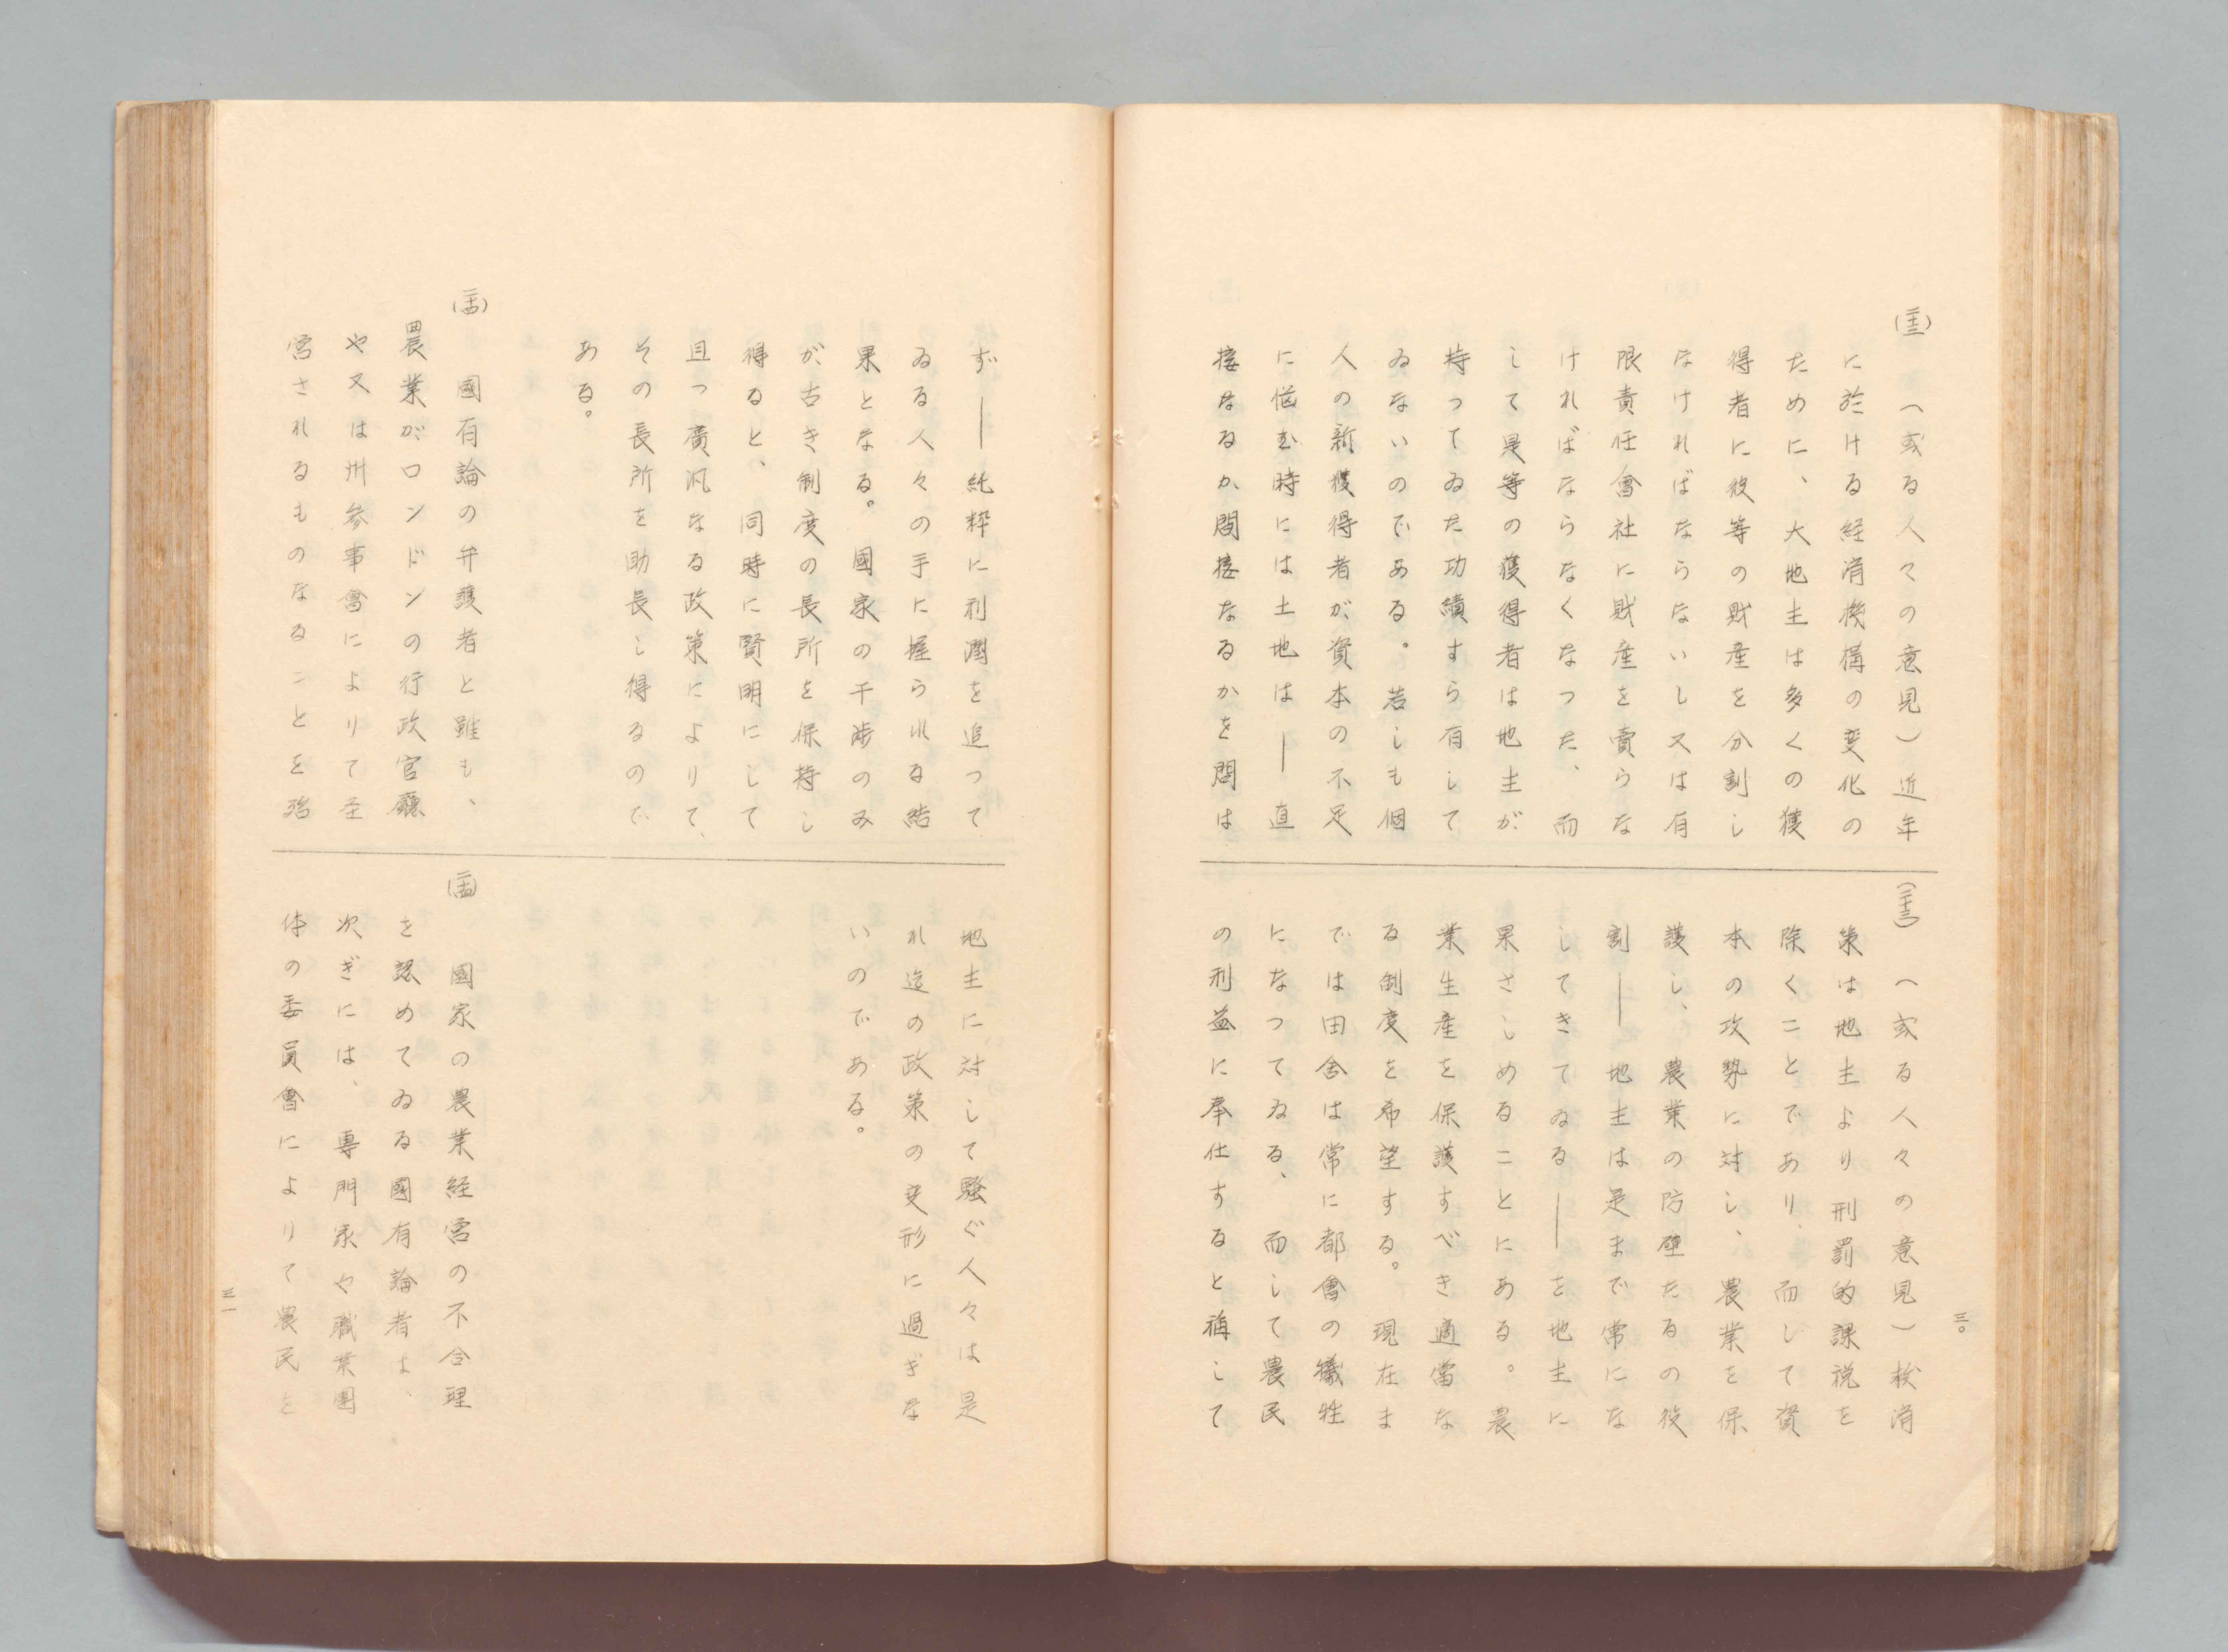 (二三) (或る人々の意見)近年
に於ける経済機構の変化の
ために、大地主は多くの獲
得者に彼等の財産を分割し
なければならないし又は有
限責任會社に財産を賣らな
ければならなくなつた、而
して是等の獲得者は地主が
持つてゐた功績すら有して
ゐないのである。若しも個
人の新獲得者が資本の不足
に悩む時には土地は――直
接なるか間接なるかを問は
(二三) (或る人々の意見)救済
策は地主より刑罰的課税を
除くことであり、而して資
本の攻勢に対し、農業を保
護し、農業の防壁たるの役
割――地主は是まで常にな
してきてゐる――を地主に
果さしめることにある。農
業生産を保護すべき適當な
る制度を希望する。現在ま
では田舎は常に都會の犠牲
になつてゐる、而して農民
の利益に奉仕すると稱して
三〇
ず――純粋に利潤を追つて
ゐる人々の手に握られる結
果となる。國家の干渉のみ
が、古き制度の長所を保持し
得ると、同時に賢明にして
且つ廣汎なる政策によりて、
その長所を助長し得るので
ある。
(二四) 國有論の弁護者と雖も、
農業がロンドンの行政官廳
や又は州参事會によりて圣
営されるものなることを殆
地主に対して騒ぐ人々は是
れ迄の政策の変形に過ぎな
いのである。
(二四) 國家の農業経営の不合理
を認めてゐる國有論者は、
次ぎには、専門家や職業團
体の委員會によりて農民を
三一